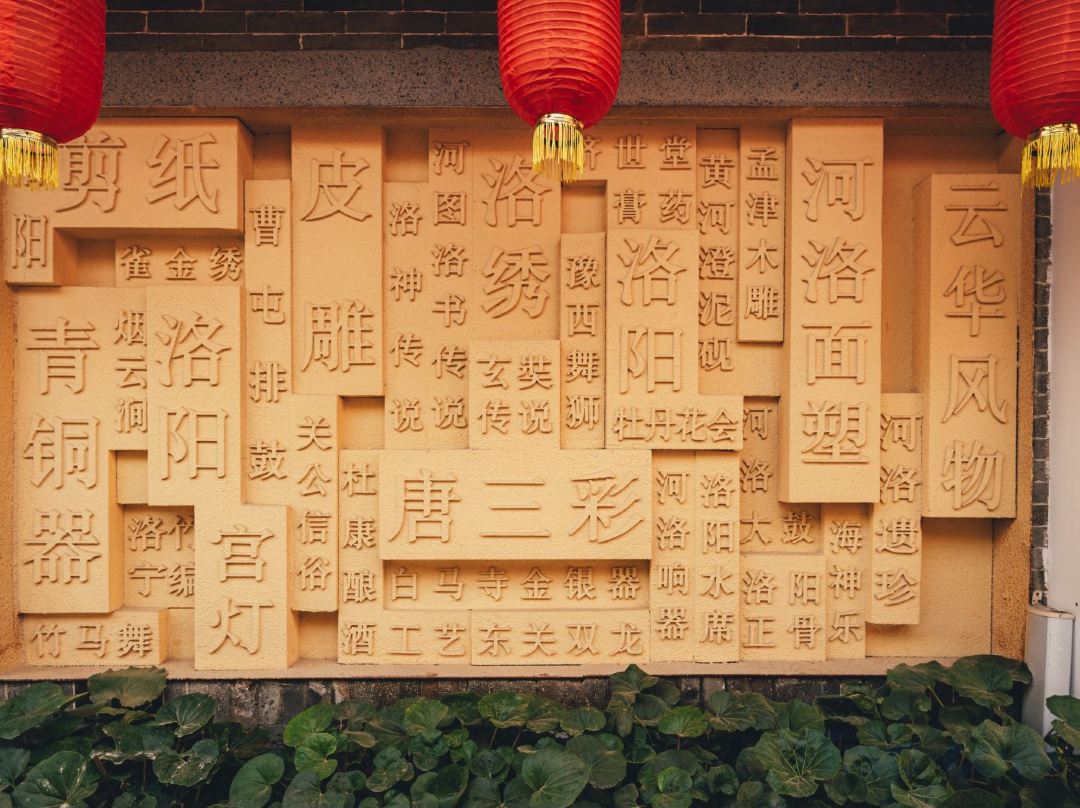 阳剪纸
雀金绣
曹屯排鼓
皮雕
洛神传说
河图洛书传说
洛绣
玄奘
传说
豫西舞狮
世堂
膏药
洛阳
牡丹花会
黄河澄泥砚
孟津木雕
河洛面塑
云华风物
青铜器
烟云涧
洛阳
宫灯
洛宁
竹编
竹马舞
关公信俗
杜康酿酒工艺
唐三彩
白马寺金银器
东关双龙
河洛响器
洛阳水席
河洛大鼓
洛阳
正骨
海神乐
河洛遗珍